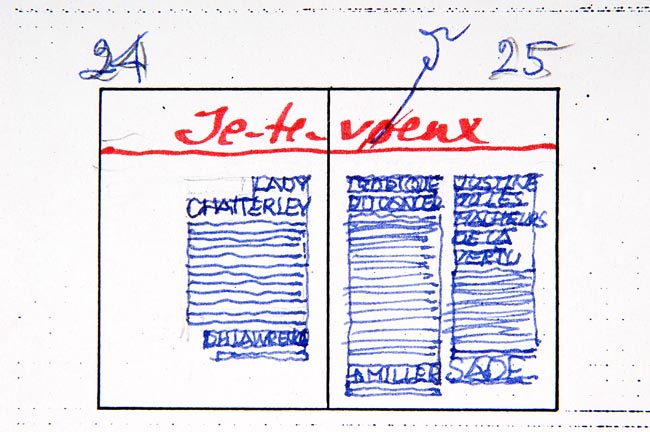 24
25
Je-te-veux
LADY
CHATTERLEY
DH LAWRENCE
TROPIQUE
DU CANCER
MILLER
JUSTINE
OU LES
MALHEURS
DE LA
VERTU
SADE